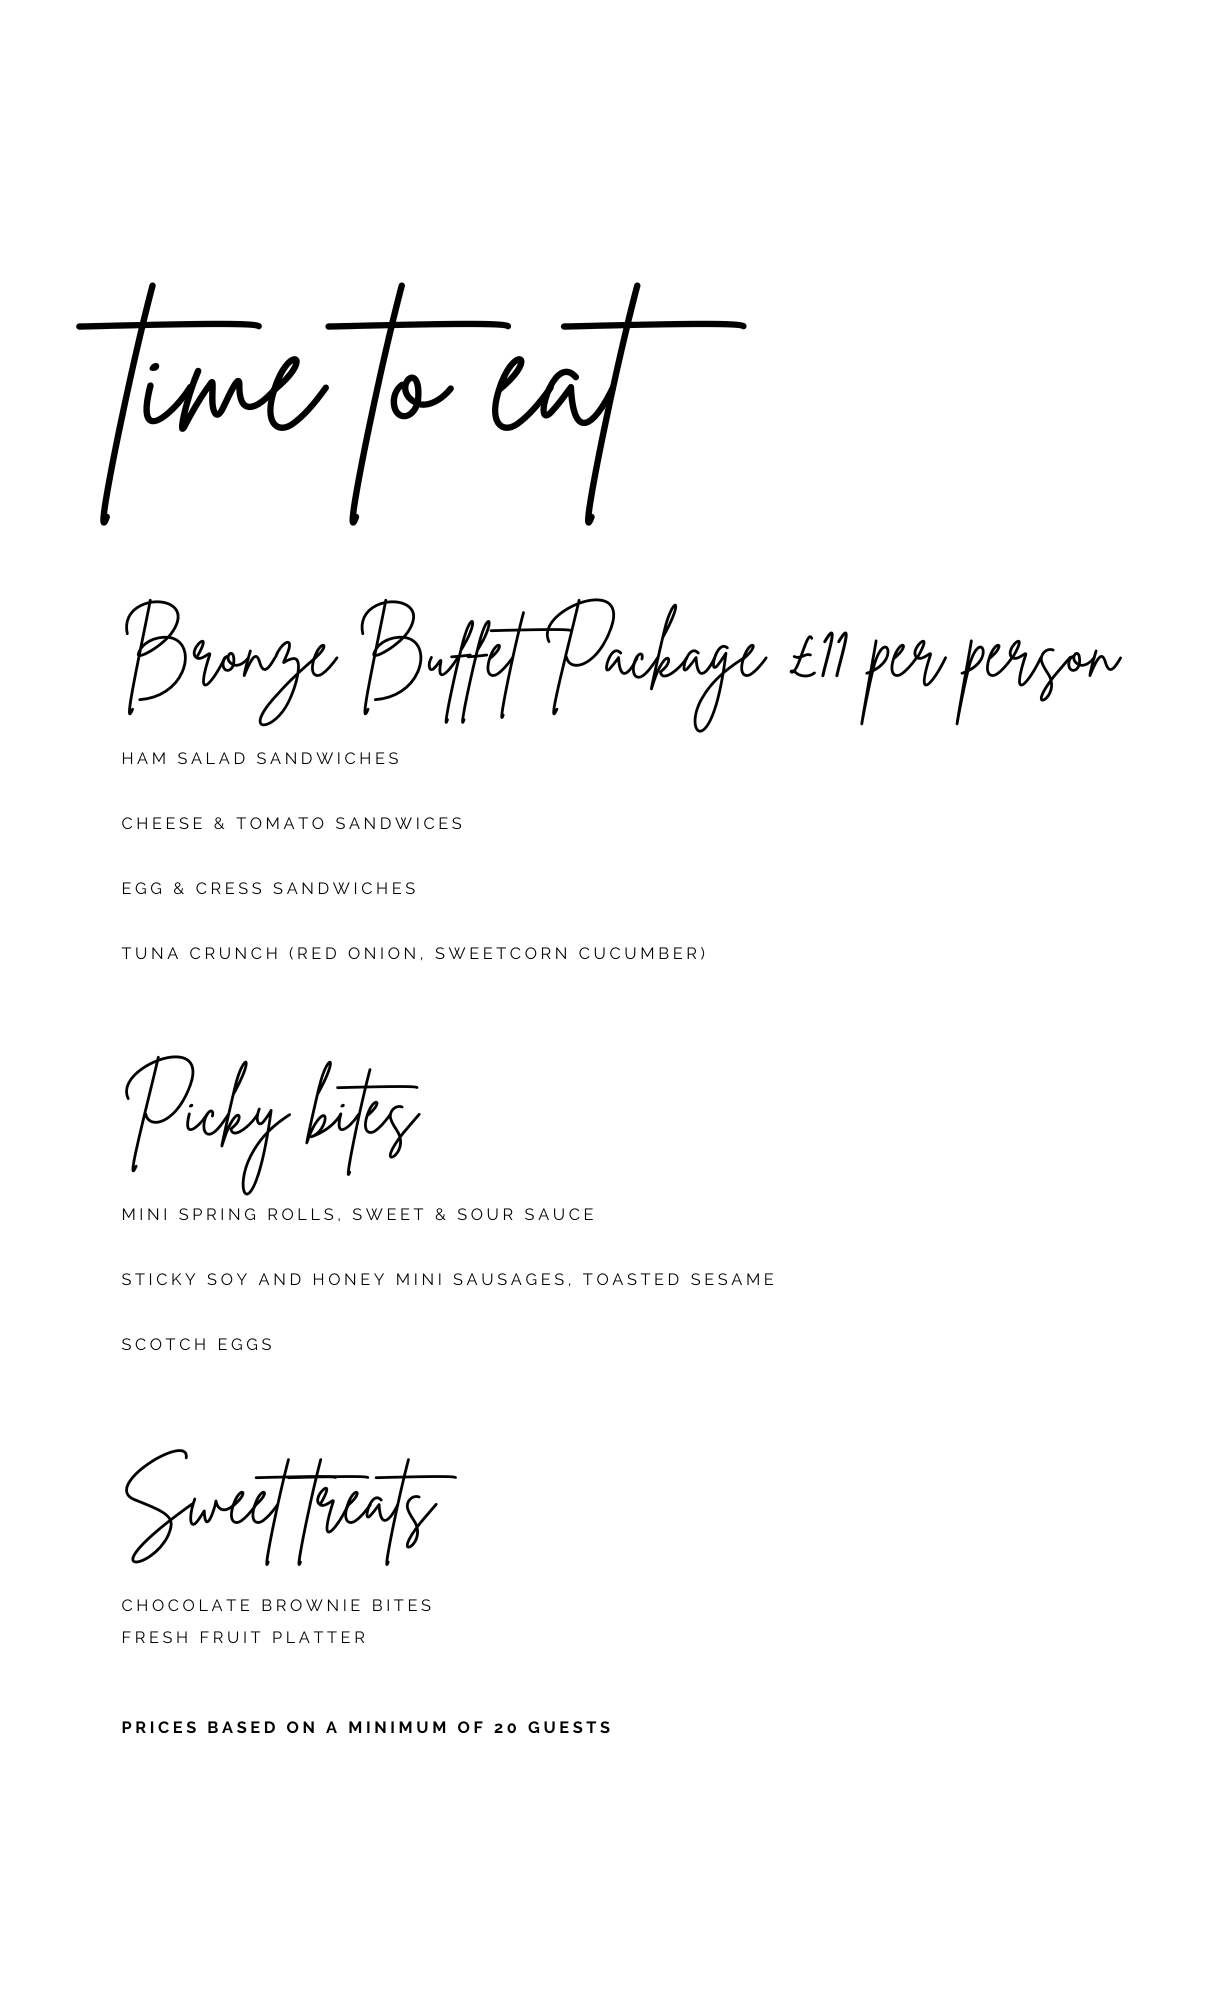 time to eat
Bronze Buffet Package £11 per person
HAM SALAD SANDWICHES
CHEESE & TOMATO SANDWICES
EGG & CRESS SANDWICHES
TUNA CRUNCH (RED ONION, SWEETCORN CUCUMBER)
Picky bites
MINI SPRING ROLLS, SWEET & SOUR SAUCE
STICKY SOY AND HONEY MINI SAUSAGES, TOASTED SESAME
SCOTCH EGGS
Sweet treats
CHOCOLATE BROWNIE BITES
FRESH FRUIT PLATTER
PRICES BASED ON A MINIMUM OF 20 GUESTS